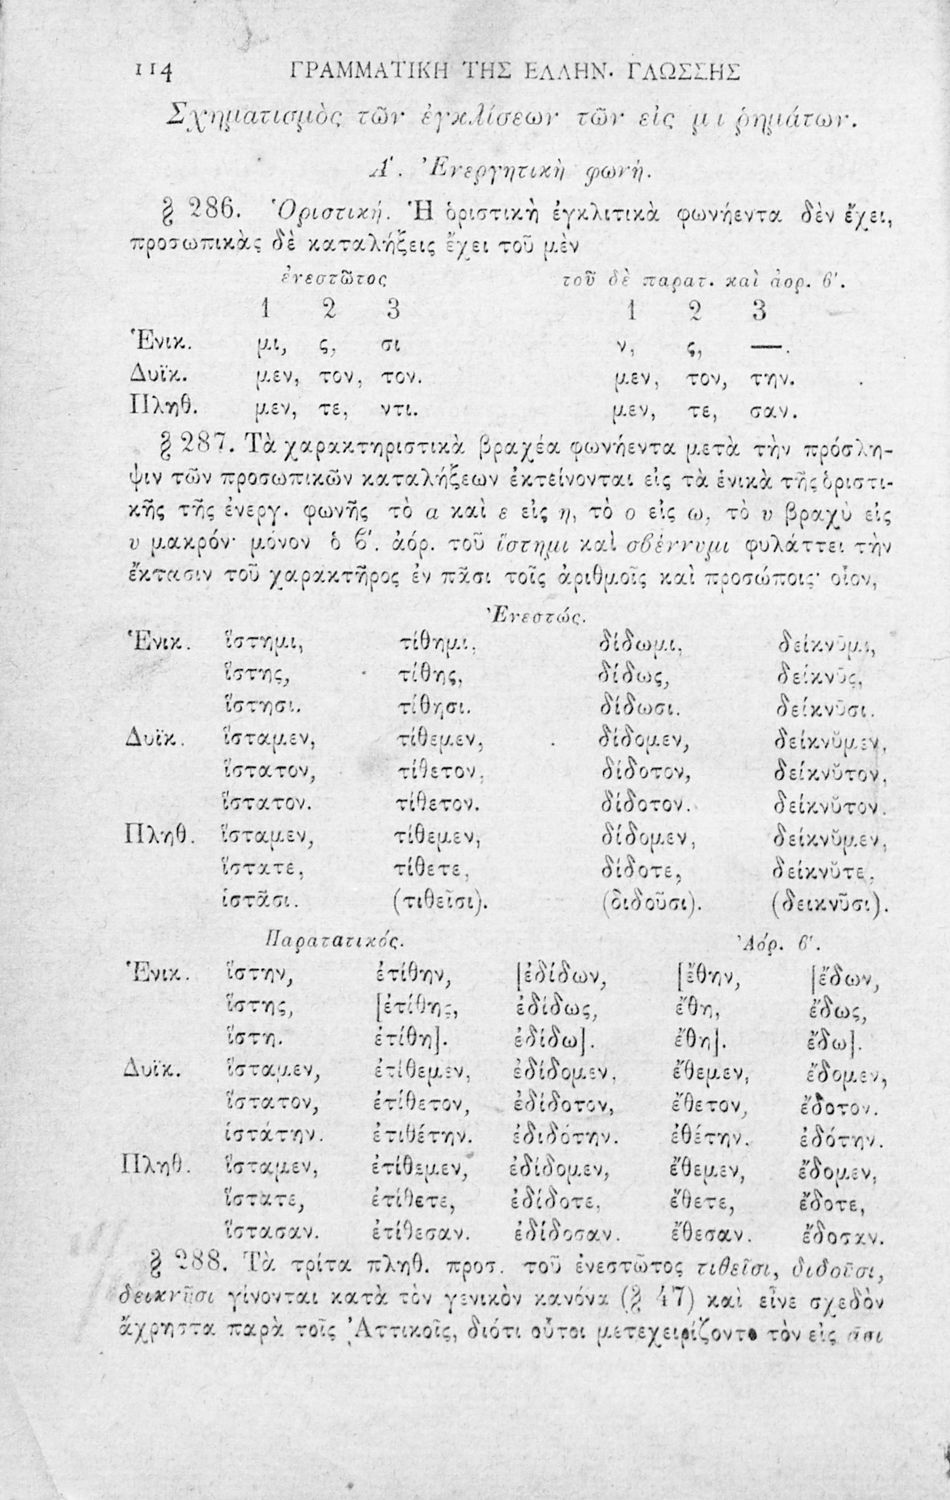 114 ΓΡΑΜΜΑΤΙΚΗ ΤΗΣ ΕΛΛΗΝ. ΓΛΩΣΣΗΣ
Σχηματισμὸς τῶν ἐγκλίσεων τῶν εἰς μι ῥημάτων.
Α'. Ἐνεργητικὴ φωνή.
§ 286. Ὁριστική. Ἡ ὁριστικὴ ἐγκλιτικὰ φωνήεντα δὲν ἔχει,
προσωπικὰς δὲ καταλήξεις ἔχει τοῦ μὲν
ἐνεστῶτος τοῦ δὲ παρατ. καὶ ἀορ. β'.
1 2 3 1 2 3
Ἑνικ. μι, ς, σι ν, ς, —.
Δυϊκ. μεν, τον, τον. μεν, τον, την.
Πληθ. μεν, τε, ντι. μεν, τε, σαν.
§ 287. Τὰ χαρακτηριστικὰ βραχέα φωνήεντα μετὰ τὴν πρόσλη-
ψιν τῶν προσωπικῶν καταλήξεων ἐκτείνονται εἰς τὰ ἑνικὰ τῆς ὁριστι-
κῆς τῆς ἐνεργ. φωνῆς τὸ α καὶ ε εἰς η, τὸ ο εἰς ω, τὸ υ βραχὺ εἰς
υ μακρόν· μόνον ὁ β'. ἀόρ. τοῦ ἵστημι καὶ σβέννυμι φυλάττει τὴν
ἔκτασιν τοῦ χαρακτῆρος ἐν πᾶσι τοῖς ἀριθμοῖς καὶ προσώποις· οἷον,
Ἐνεστώς.
Ἑνικ. ἵστημι, τίθημι, δίδωμι, δείκνῡμι,
ἵστης, τίθης, δίδως, δείκνῡς,
ἵστησι. τίθησι. δίδωσι. δείκνῡσι.
Δυϊκ. ἵσταμεν, τίθεμεν, δίδομεν, δείκνῠμεν,
ἵστατον, τίθετον, δίδοτον, δείκνῠτον,
ἵστατον. τίθετον. δίδοτον. δείκνῠτον.
Πληθ. ἵσταμεν, τίθεμεν, δίδομεν, δείκνῠμεν,
ἵστατε, τίθετε, δίδοτε, δείκνῠτε,
ἱστᾶσι. (τιθεῖσι). (διδοῦσι). (δεικνῦσι).
Παρατατικός. Ἀόρ. β'.
Ἑνικ. ἵστην, ἐτίθην, [ἐδίδων, [ἔθην, [ἔδων,
ἵστης, [ἐτίθης, ἐδίδως, ἔθη, ἔδως,
ἵστη. ἐτίθη]. ἐδίδω]. ἔθη]. ἔδω].
Δυϊκ. ἵσταμεν, ἐτίθεμεν, ἐδίδομεν, ἔθεμεν, ἔδομεν,
ἵστατον, ἐτίθετον, ἐδίδοτον, ἔθετον, ἔδοτον.
ἱστάτην. ἐτιθέτην. ἐδιδότην. ἐθέτην. ἐδότην.
Πληθ. ἵσταμεν, ἐτίθεμεν, ἐδίδομεν, ἔθεμεν, ἔδομεν,
ἵστατε, ἐτίθετε, ἐδίδοτε, ἔθετε, ἔδοτε,
ἵστασαν. ἐτίθεσαν. ἐδίδοσαν. ἔθεσαν. ἔδοσαν.
§ 288. Τὰ τρίτα πληθ. προσ. τοῦ ἐνεστῶτος τιθεῖσι, διδοῦσι,
δεικνῦσι γίνονται κατὰ τὸν γενικὸν κανόνα (§ 47) καὶ εἶνε σχεδὸν
ἄχρηστα παρὰ τοῖς Ἀττικοῖς, διότι οὗτοι μετεχειρίζοντο τὸν εἰς ᾱσι